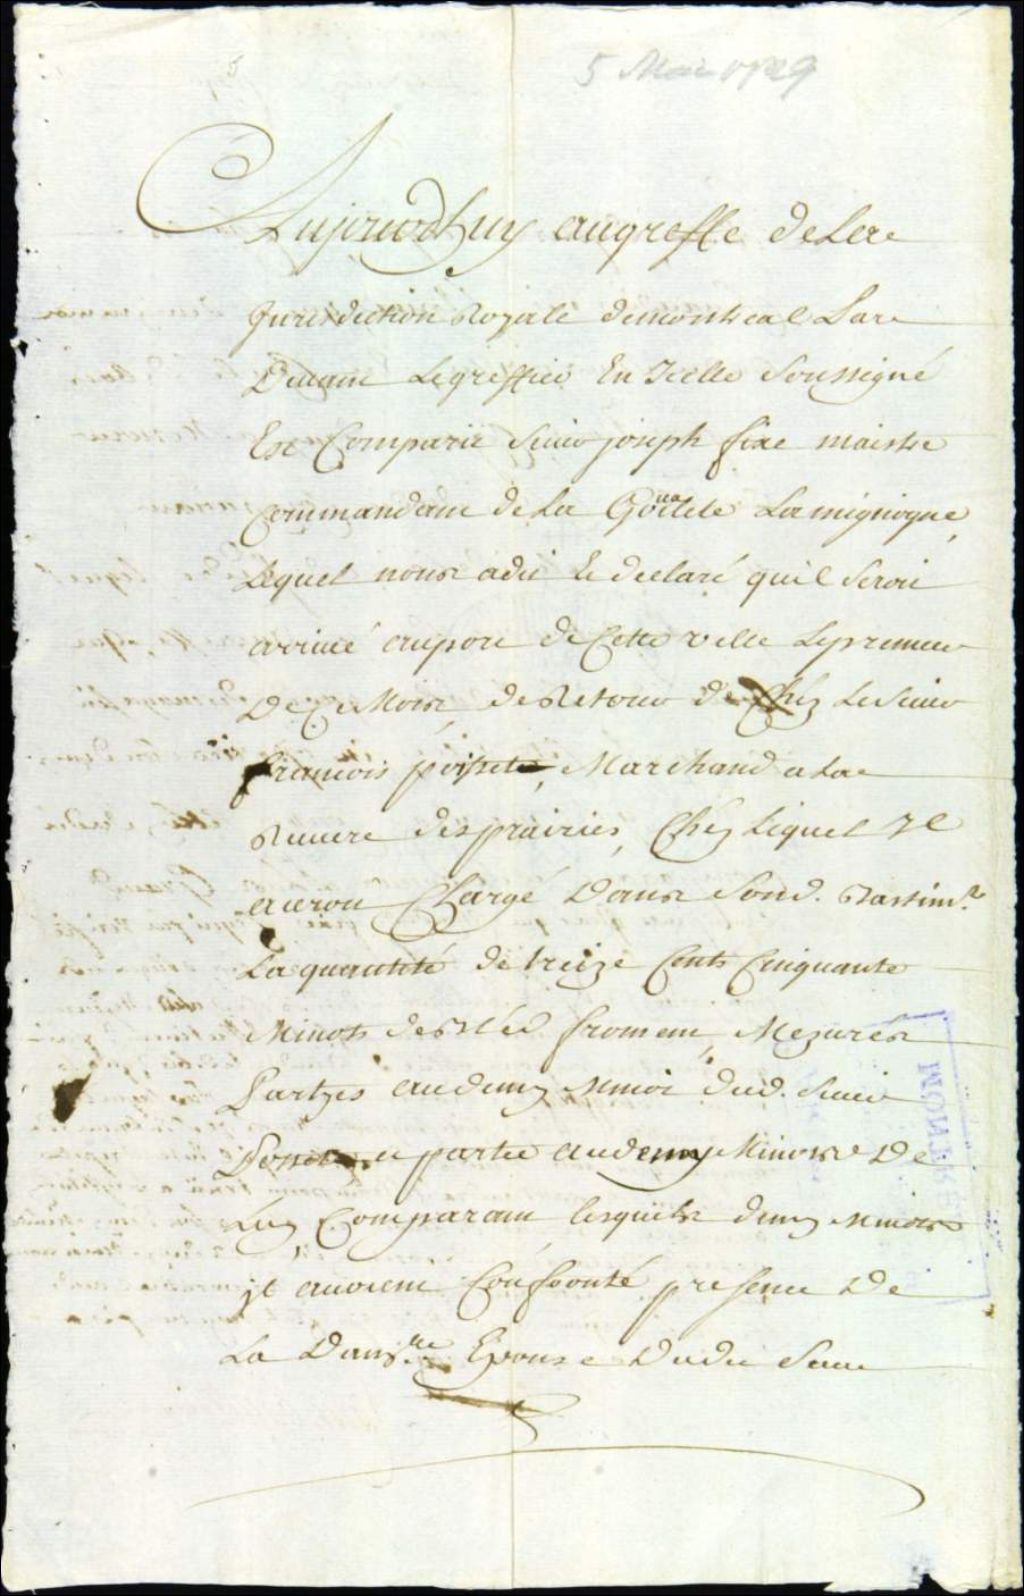 5 Mai 1729
Aujourdhuy au greffe de La
Jurisdiction Royale de montreal Par
Devant Le greffier En Icelle Soussigné
Est Comparu Sieur joseph fixe maistre
Commandant de La Goualete La mignogne,
Lequel nous a dit Et declaré quil Seroit
arrivé au port de Cette ville Le premier
De Ce Mois, de Retour de Chéz Le Sieur
francois poisset, Marchand a La
Riviere des prairies, Chéz Lequel Il
auroit Chargé Dans Sond. Bastimt.
La quantité de treize Cents Cinquante
Minots de Bléd froment, Mezurés
Parties au demy Minot dud. Sieur
Poisset, et partie au demy Minot De
Luy Comparant lesquels demy minots
jl auoient Confronté presence De
La Damlle. Epouse Dudit Sieur